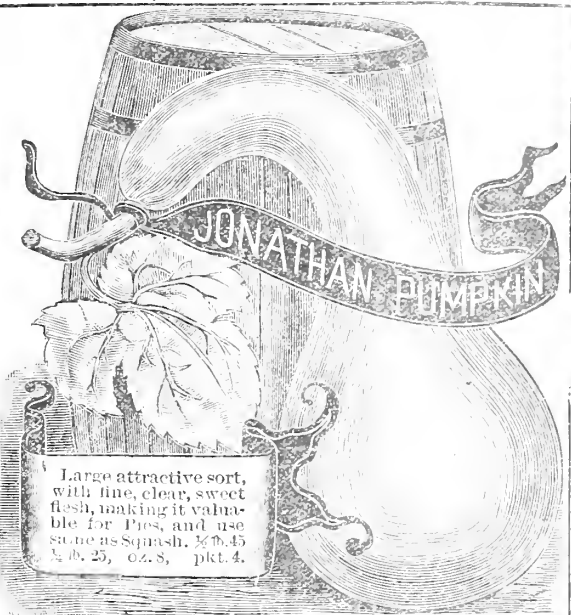 JONATHAN PUMPKIN
Large attractive sort,
with fine, clear, sweet
flesh, making it valua-
ble for Pies, and use
same as Squash. ½ ℔. 45
¼ ℔. 25, oz. 8, pkt. 4.